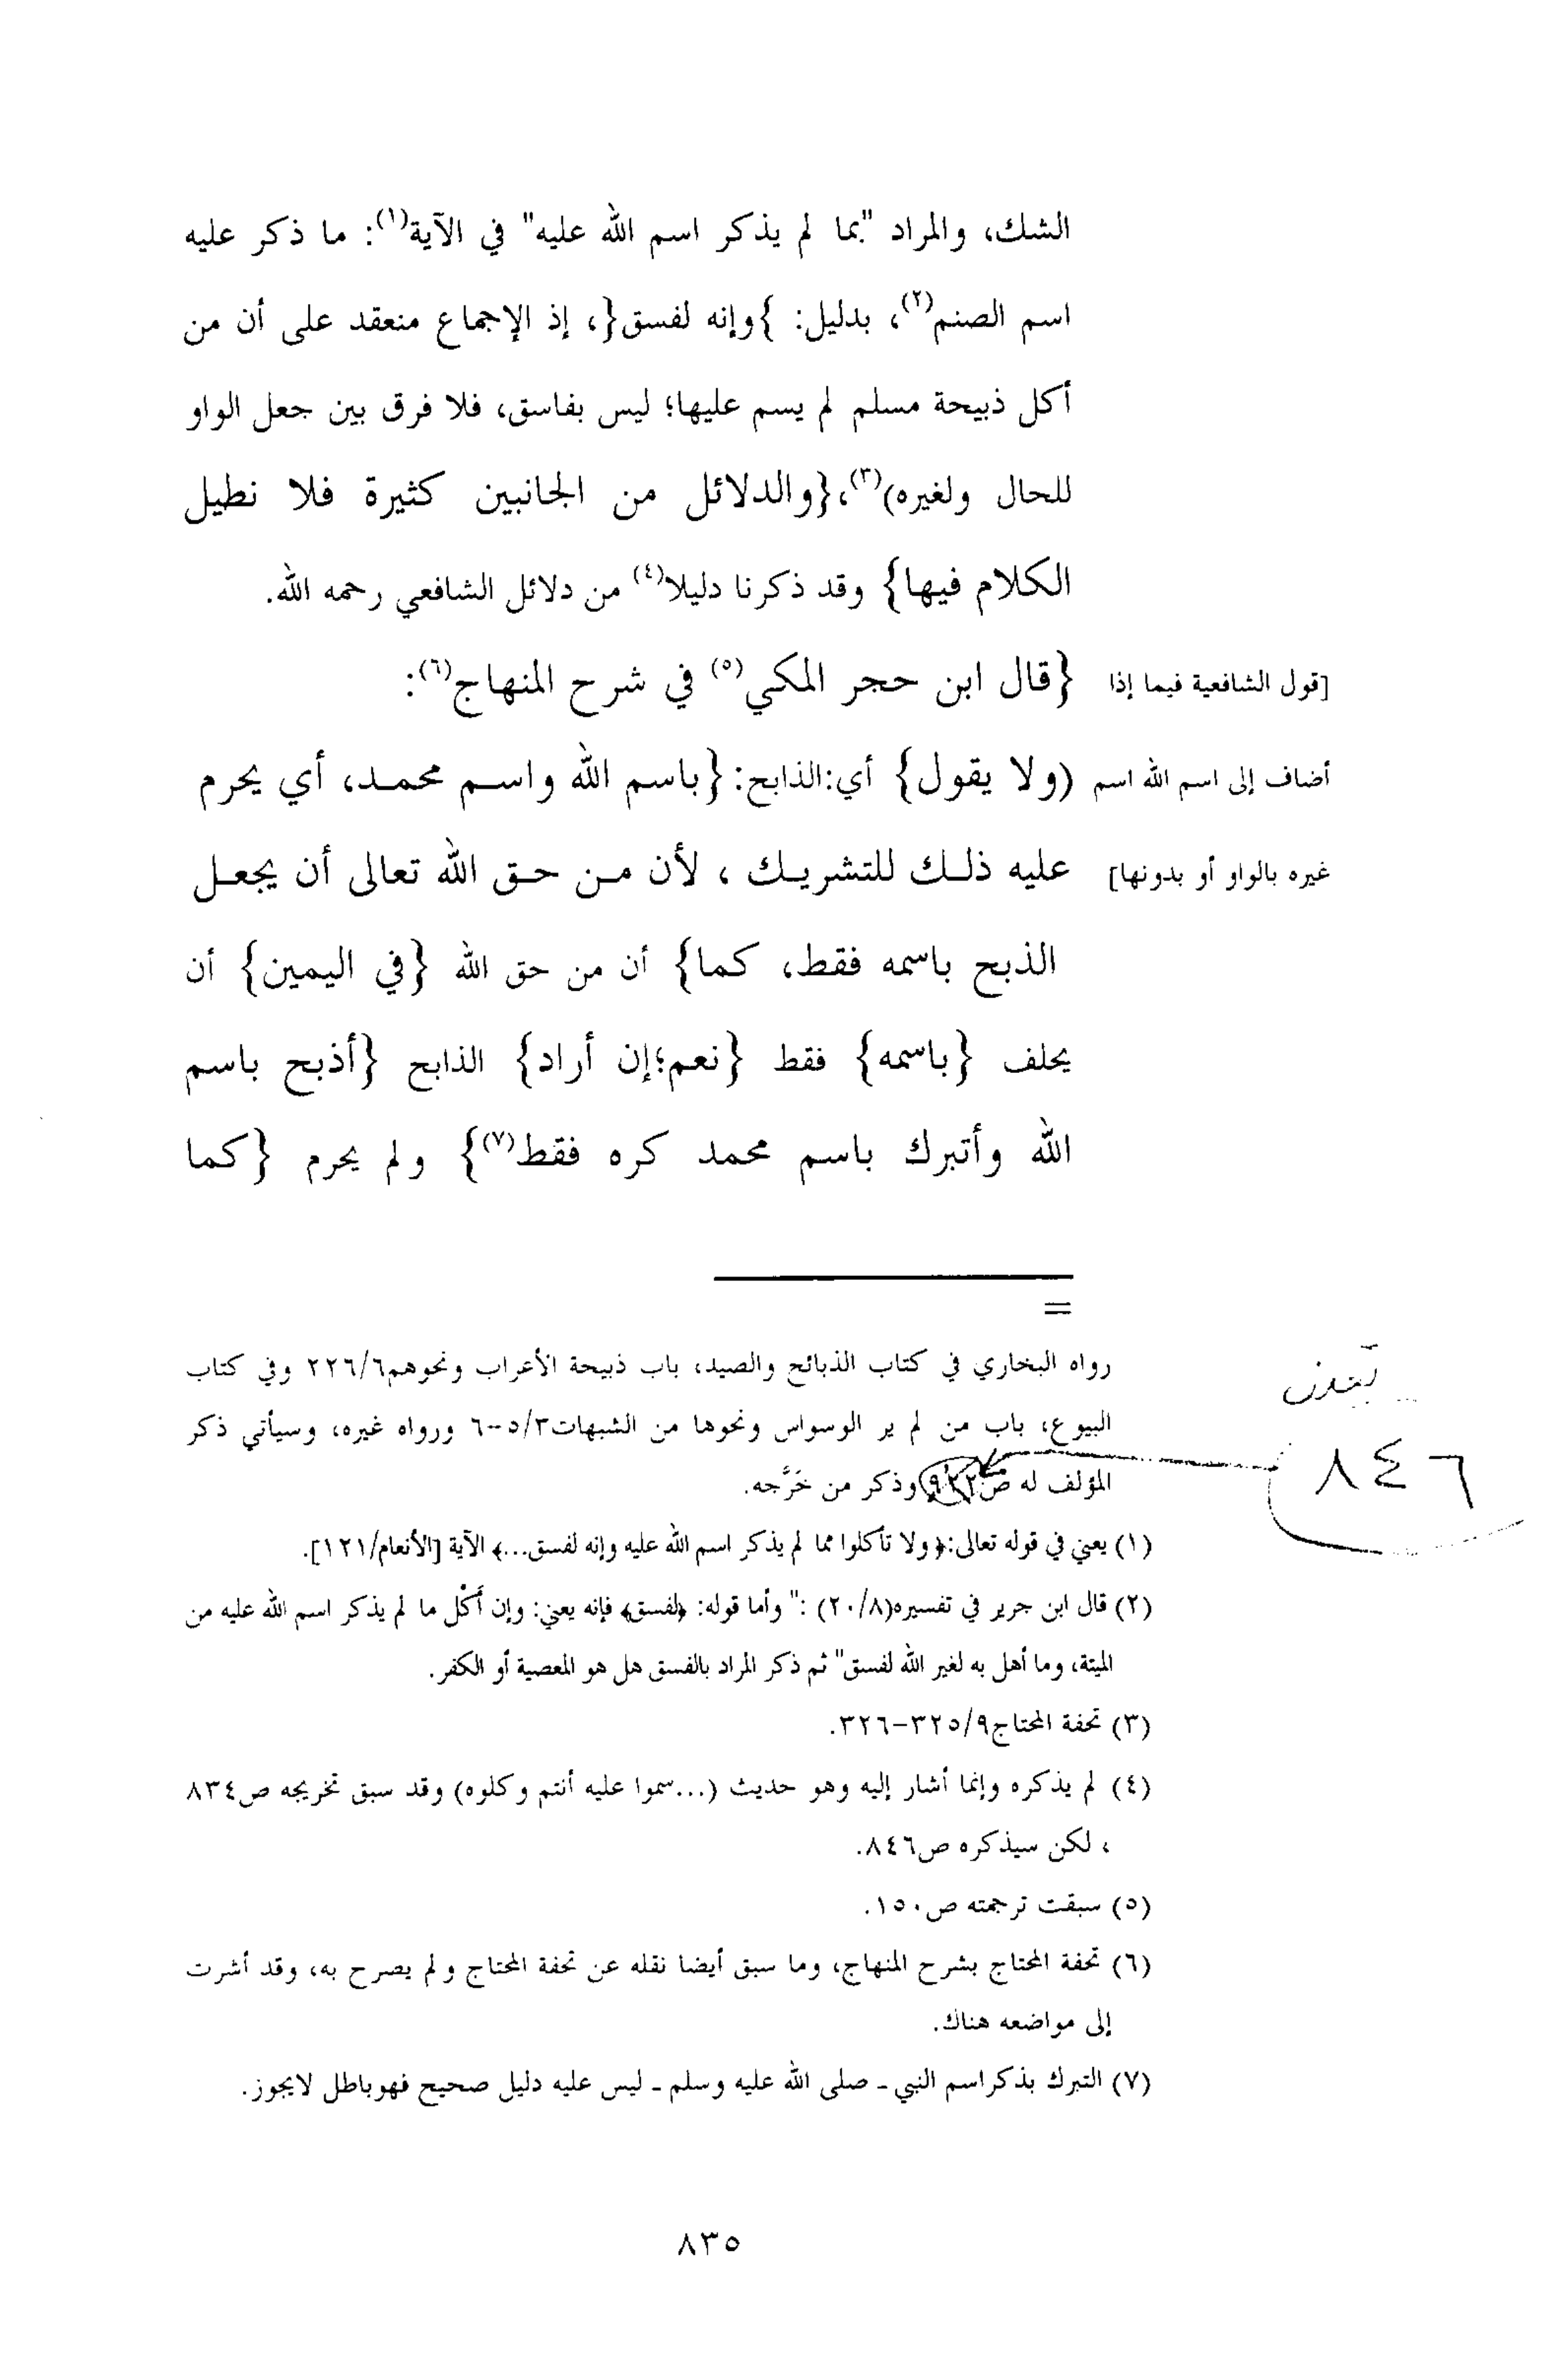 الشك، والمراد "بما لم يذكر اسم الله عليه" في الآية(١): ما ذكر عليه
اسم الصنم(٢)، بدليل: }وإنه لفسق{، إذ الإجماع منعقد على أن من
أكل ذبيحة مسلم لم يسم عليها؛ ليس بفاسق، فلا فرق بين جعل الواو
للحال ولغيره)(٣)،{والدلائل من الجانبين كثيرة فلا نطيل
الكلام فيها} وقد ذكرنا دليلا(٤) من دلائل الشافعي رحمه الله.
[قول الشافعية فيما إذا {قال ابن حجر المكي(٥) في شرح المنهاج(٦):
أضاف إلى اسم الله اسم (ولا يقول} أي:الذابح:{باسم الله واسم محمد، أي يحرم
غيره بالواو أو بدونها] عليه ذلك للتشريك ، لأن من حق الله تعالى أن يجعل
الذبح باسمه فقط، كما} أن من حق الله {في اليمين} أن
يحلف {باسمه} فقط {نعم؛إن أراد} الذابح {أذبح باسم
الله وأتبرك باسم محمد كره فقط(٧)} ولم يحرم {كما
=
رواه البخاري في كتاب الذبائح والصيد، باب ذبيحة الأعراب ونحوهم٢٢٦/٦ وفي كتاب
البيوع، باب من لم ير الوسواس ونحوها من الشبهات٥/٣--٦ ورواه غيره، وسيأتي ذكر
المؤلف له ص٩٢٢ وذكر من خَرَّجه.
٨٤٦
(١) يعني في قوله تعالى:﴿ولا تأكلوا مما لم يذكر اسم الله عليه وإنه لفسق...﴾ الآية [الأنعام/١٢١].
(٢) قال ابن جرير في تفسيره(٢٠/٨) :" وأما قوله: ﴿لفسق﴾ فإنه يعني: وإن أَكْل ما لم يذكر اسم الله عليه من
الميتة، وما أهل به لغير الله لفسق" ثم ذكر المراد بالفسق هل هو المعصية أو الكفر.
(٣) تحفة المحتاج٣٢٥/٩-٣٢٦.
(٤) لم يذكره وإنما أشار إليه وهو حديث (...سموا عليه أنتم وكلوه) وقد سبق تخريجه ص٨٣٤
، لكن سيذكره ص٨٤٦.
(٥) سبقت ترجمته ص١٥٠.
(٦) تحفة المحتاج بشرح المنهاج، وما سبق أيضا نقله عن تحفة المحتاج ولم يصرح به، وقد أشرت
إلى مواضعه هناك.
(٧) التبرك بذكراسم النبي ـ صلى الله عليه وسلم ـ ليس عليه دليل صحيح فهوباطل لايجوز.
٨٣٥